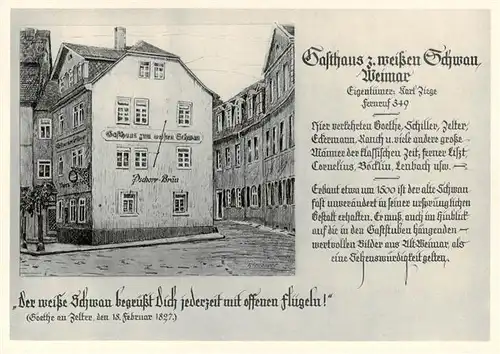 Gasthaus z. weißen Schwan
Weimar
Eigentümer: Karl Ziege
Fernruf 349
Hier verkehrten Goethe, Schiller, Zelter,
Eckermann, Rauch u. viele andere große
Männer der klassischen Zeit, ferner Liszt
Cornelius, Böcklin, Lenbach usw. —
Erbaut etwa um 1500 ist der alte Schwan
fast unverändert in seiner ursprünglichen
Gestalt erhalten. Er muß, auch im Hinblick
auf die in den Gaststuben hängenden
wertvollen Bilder aus Alt Weimar, als
eine Sehenswürdigkeit gelten.
Gasthaus zum weißen Schwan
Pschorr-Bräu
„Der weiße Schwan begrüßt Dich jederzeit mit offenen Flügeln!"
(Goethe an Zelter, den 18. Februar 1827.)